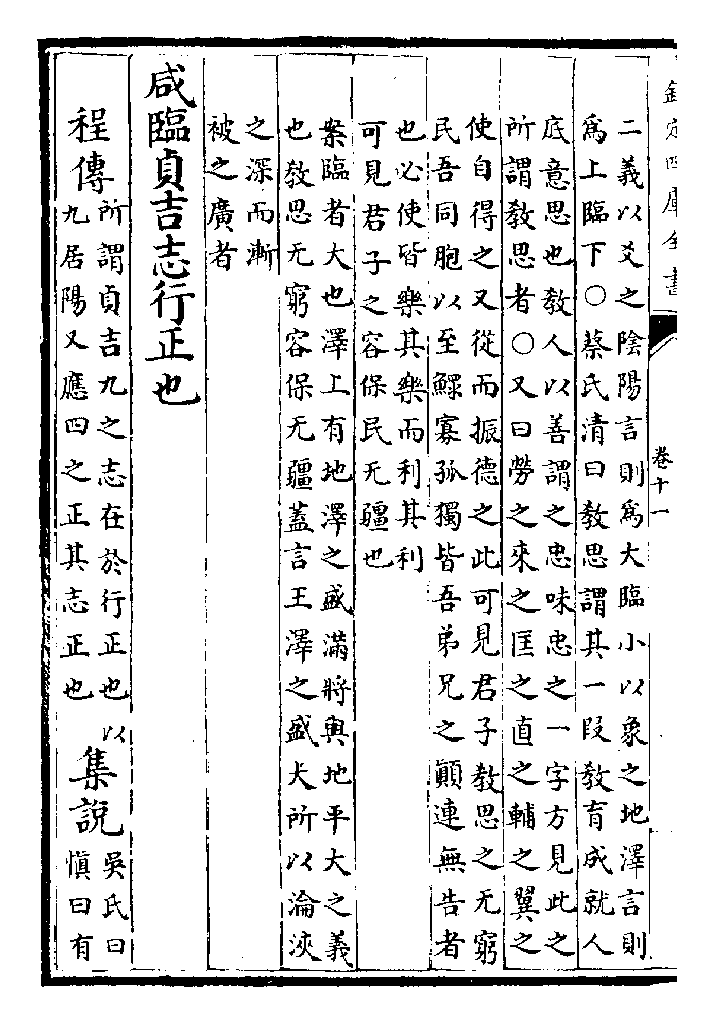 欽定四庫全書
卷十一
二義以爻之陰陽言則為大臨小以象之地澤言則
為上臨下○蔡氏清曰教思謂其一段教育成就人
底意思也教人以善謂之忠味忠之一字方見此之
所謂教思者○又曰勞之來之匡之直之輔之翼之
使自得之又從而振德之此可見君子教思之无窮
民吾同胞以至鰥寡孤獨皆吾弟兄之顛連無告者
也必使皆樂其樂而利其利
可見君子之容保民无疆也
案臨者大也澤上有地澤之盛滿將與地平大之義
也教思无窮容保无疆蓋言王澤之盛大所以淪浹
之深而漸
被之廣者
咸臨貞吉志行正也
程傳
所謂貞吉九之志在於行正也以
九居陽又應四之正其志正也
集說
吳氏曰
慎曰有